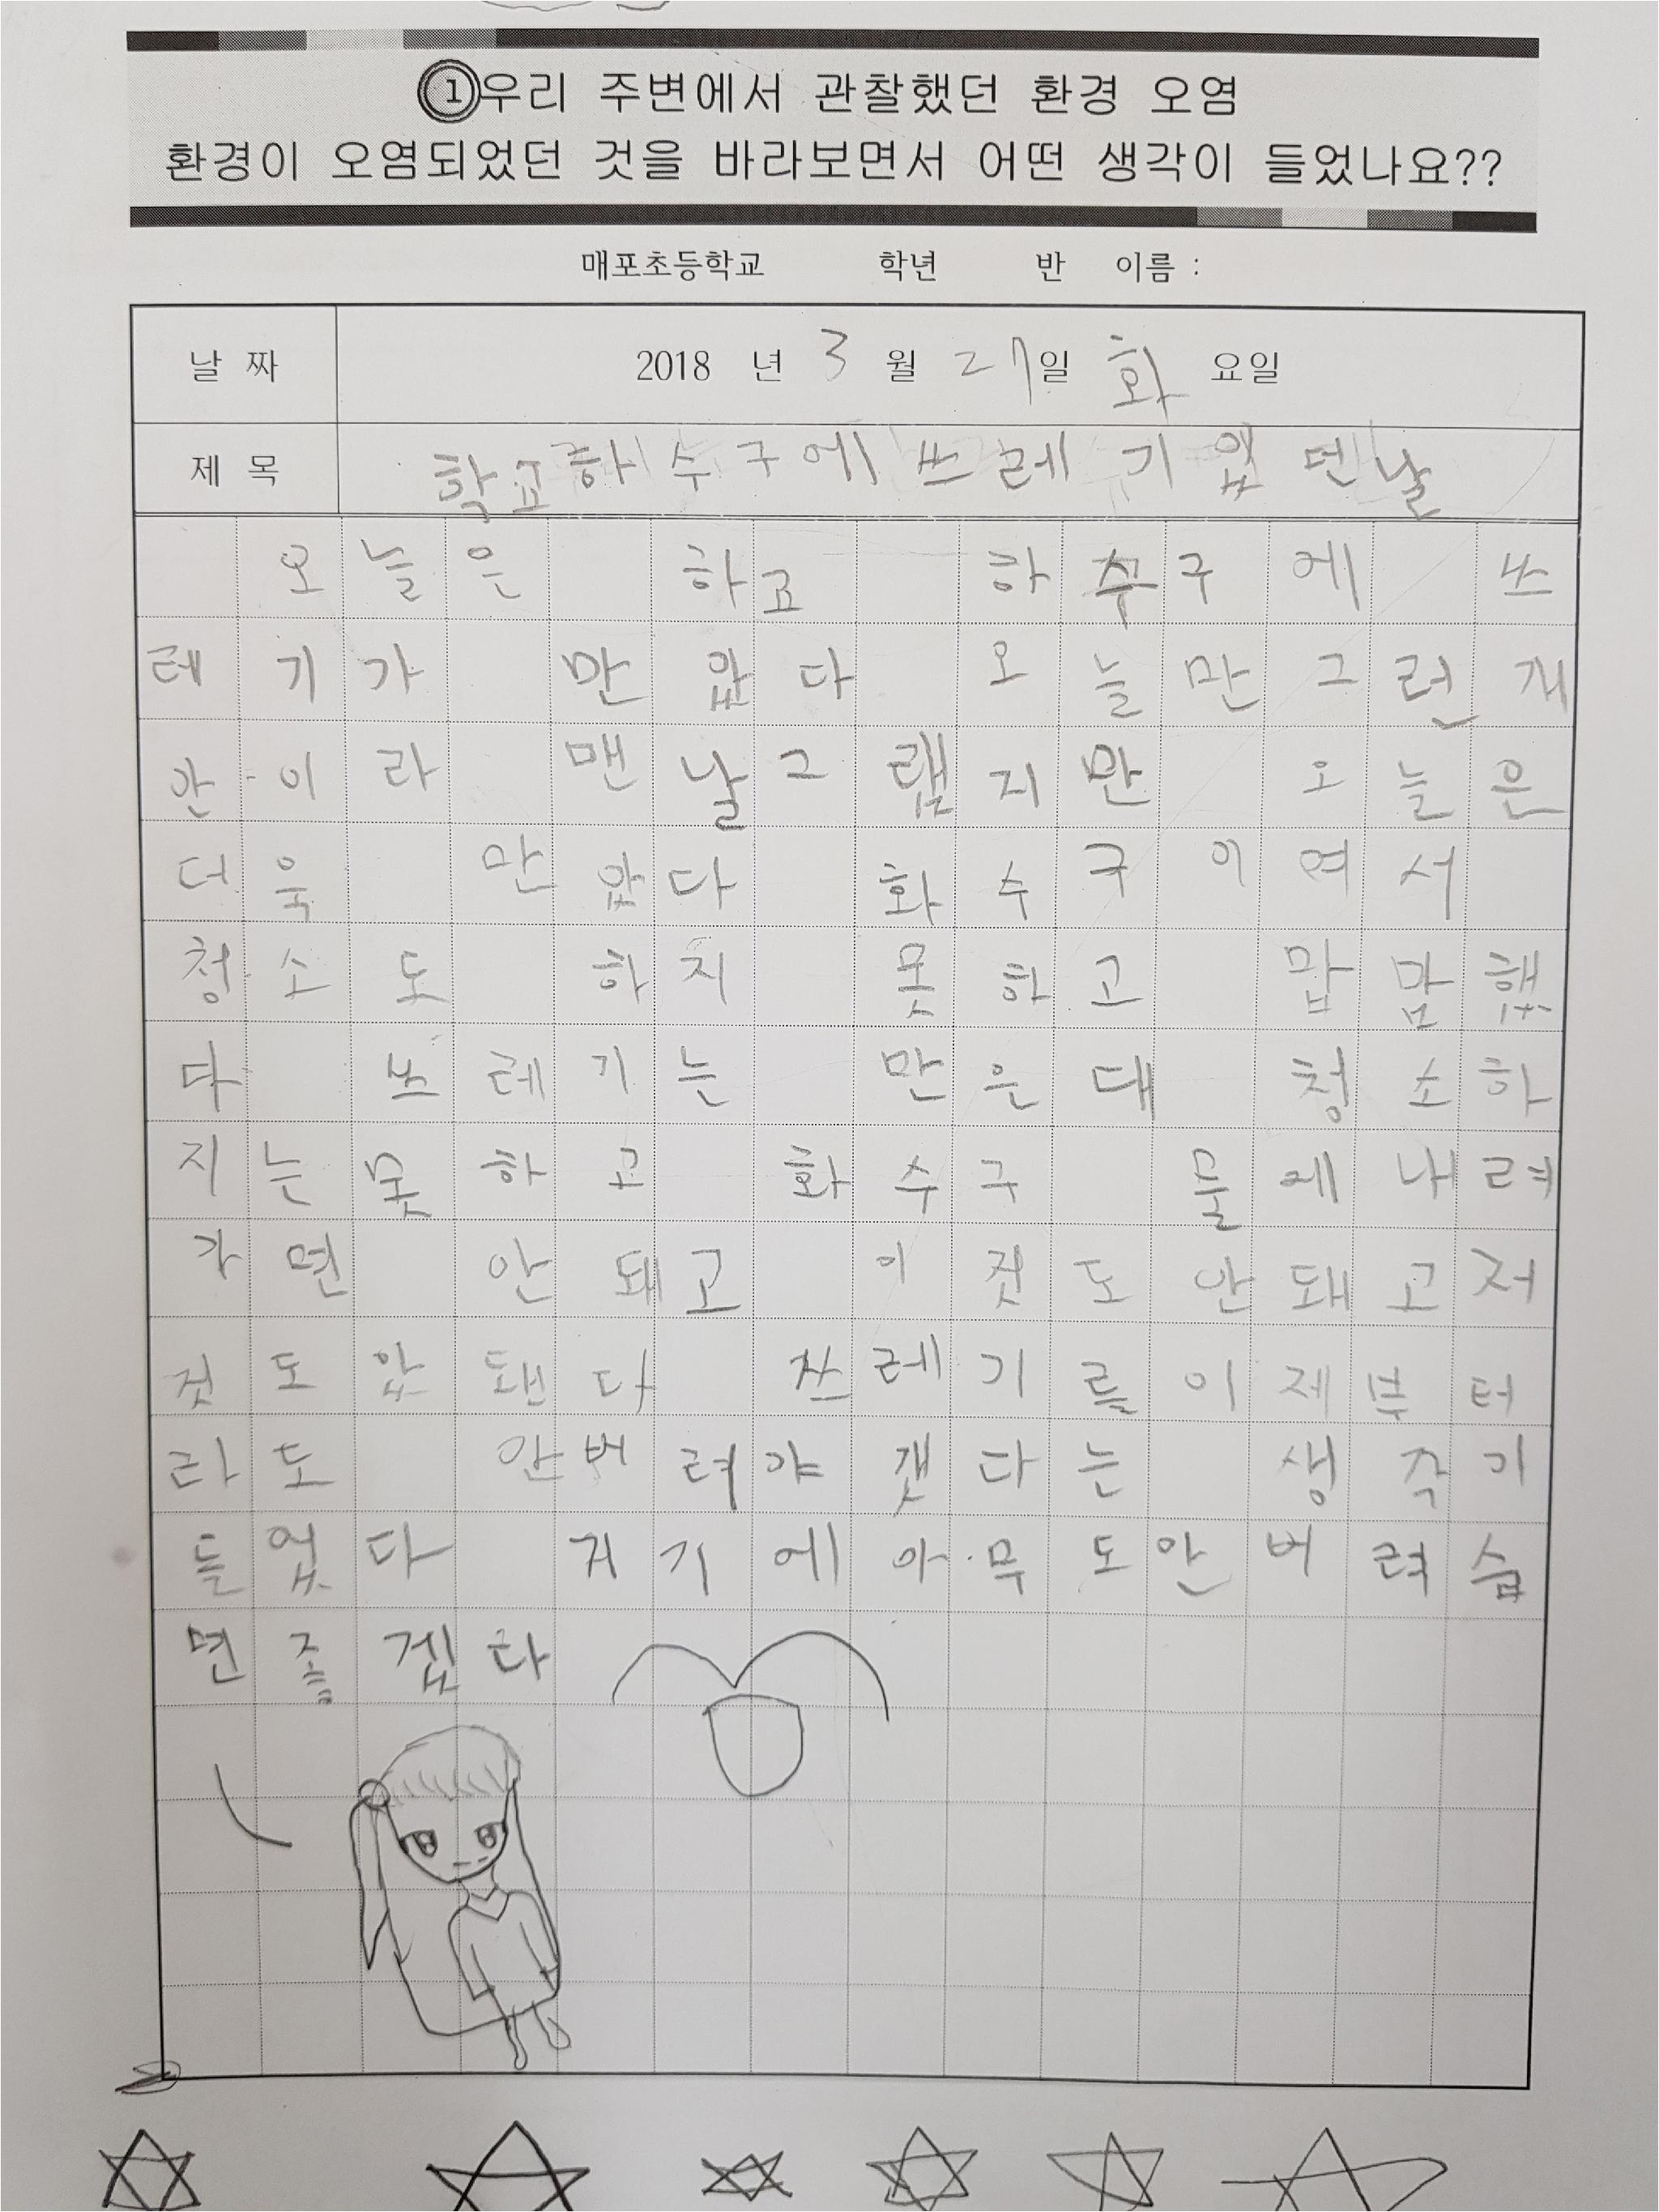 ①우리 주변에서 관찰했던 환경 오염
환경이 오염되었던 것을 바라보면서 어떤 생각이 들었나요??
매포초등학교 학년 반 이름 :
날 짜 2018 년 3 월 27일 화 요일
제 목 학교하수구에 쓰레기 있던날
오늘은 하고 하수구에 쓰
레기가 만았다 오늘만그런게
안이라 맨날그랬지만 오늘은
더욱 만았다 화수구이여서
청소도 하지 못하고 맙맙했
다 쓰레기는 만은대 청소하
지는못하고 화수구 물에내려
가면 안돼고 이것도안돼고저
것도았됀다 쓰레기를이제부터
라도 안버려야겟다는 생각기
들었다 거기에아무도안버려습
면 좋겠다